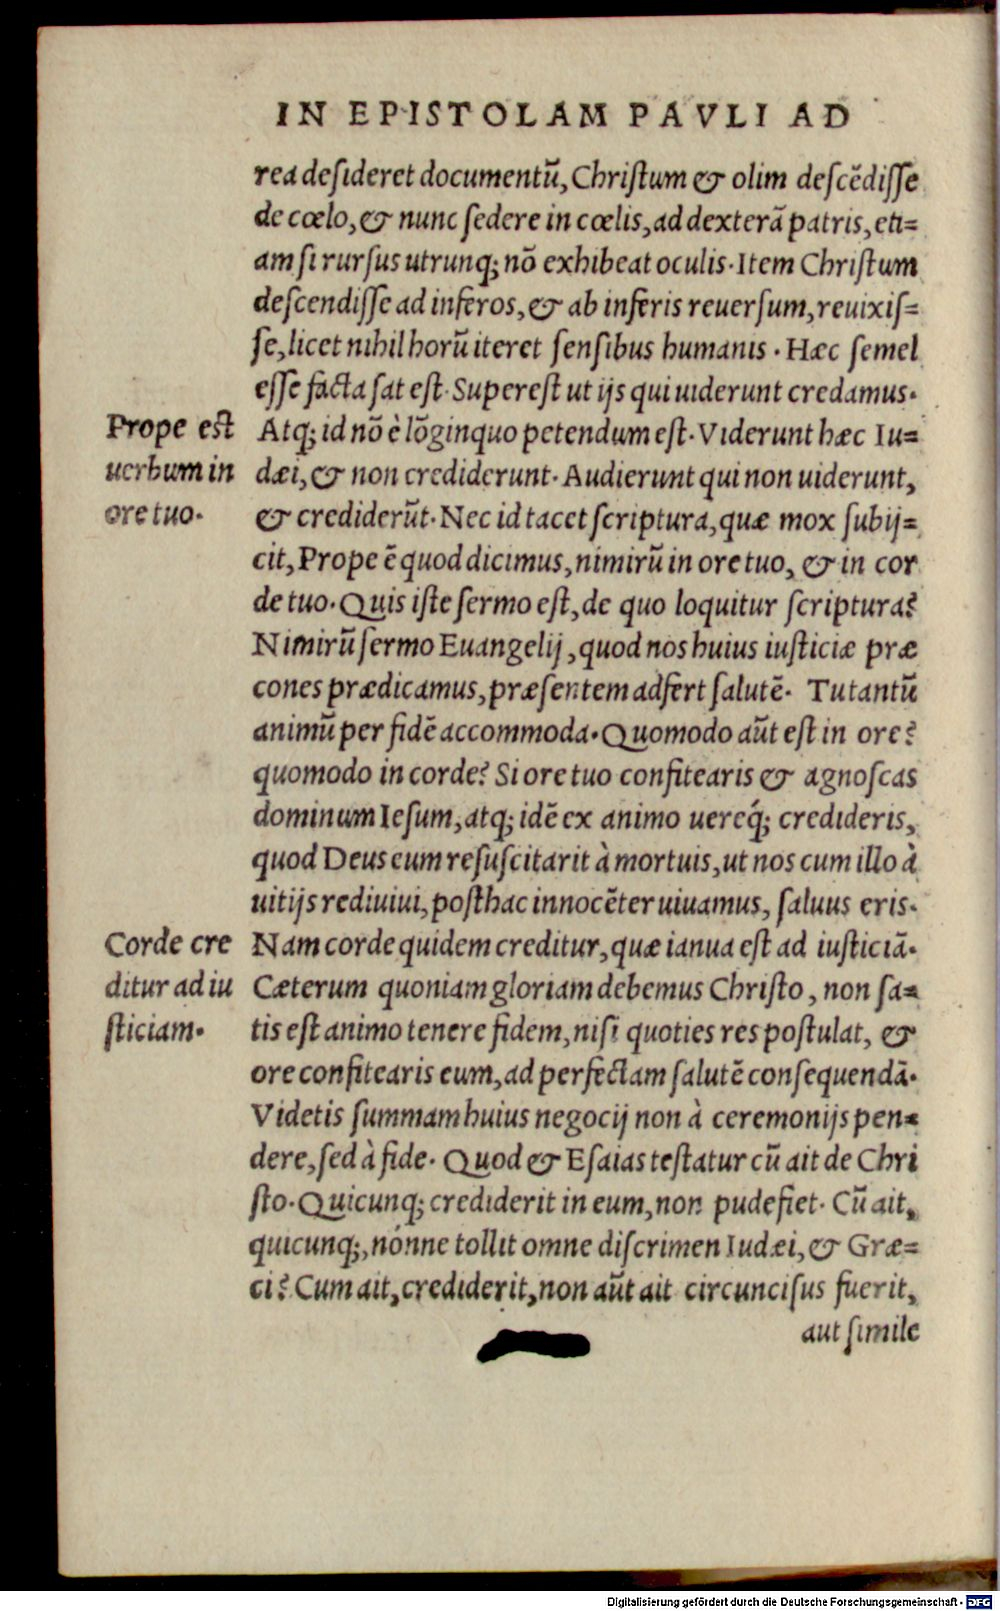 IN EPISTOLAM PAVLI AD
rea desideret documentũ, Christum & olim descẽdisse
de cœlo, & nunc sedere in cœlis, ad dexterã patris, eti=
am si rursus utrunq; nõ exhibeat oculis. Item Christum
descendisse ad inferos, & ab inferis reuersum, reuixis=
se, licet nihil horũ iteret sensibus humanis. Hæc semel
esse facta sat est. Superest ut ijs qui uiderunt credamus.
Prope est
uerbum in
ore tuo.
Atq; id nõ è lõginquo petendum est. Viderunt hæc Iu=
dæi, & non crediderunt. Audierunt qui non uiderunt,
& crediderũt. Nec id tacet scriptura, quæ mox subij=
cit, Prope ẽ quod dicimus, nimirũ in ore tuo, & in cor
de tuo. Quis iste sermo est, de quo loquitur scriptura?
Nimirũ sermo Euangelij, quod nos huius iusticiæ præ
cones prædicamus, præsentem adfert salutẽ. Tu tantũ
animũ per fidẽ accommoda. Quomodo aũt est in ore?
quomodo in corde? Si ore tuo confitearis & agnoscas
dominum Iesum, atq; idẽ ex animo uereq́; credideris,
quod Deus eum resuscitarit à mortuis, ut nos cum illo à
uitijs rediuiui, posthac innocẽter uiuamus, saluus eris.
Corde cre
ditur ad iu
sticiam.
Nam corde quidem creditur, quæ ianua est ad iusticiã.
Cæterum quoniam gloriam debemus Christo, non sa=
tis est animo tenere fidem, nisi quoties res postulat, &
ore confitearis eum, ad perfectam salutẽ consequendã.
Videtis summam huius negocij non à ceremonijs pen=
dere, sed à fide. Quod & Esaias testatur cũ ait de Chri
sto. Quicunq; crediderit in eum, non pudefiet. Cũ ait,
quicunq;, nónne tollit omne discrimen Iudæi, & Græ=
ci? Cum ait, crediderit, non aũt ait circuncisus fuerit,
aut simile
Digitalisierung gefördert durch die Deutsche Forschungsgemeinschaft - DFG